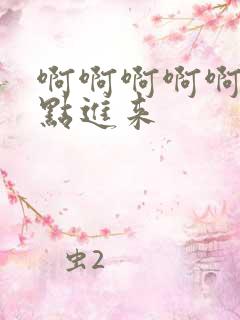 啊啊啊啊啊
點進来
虫2